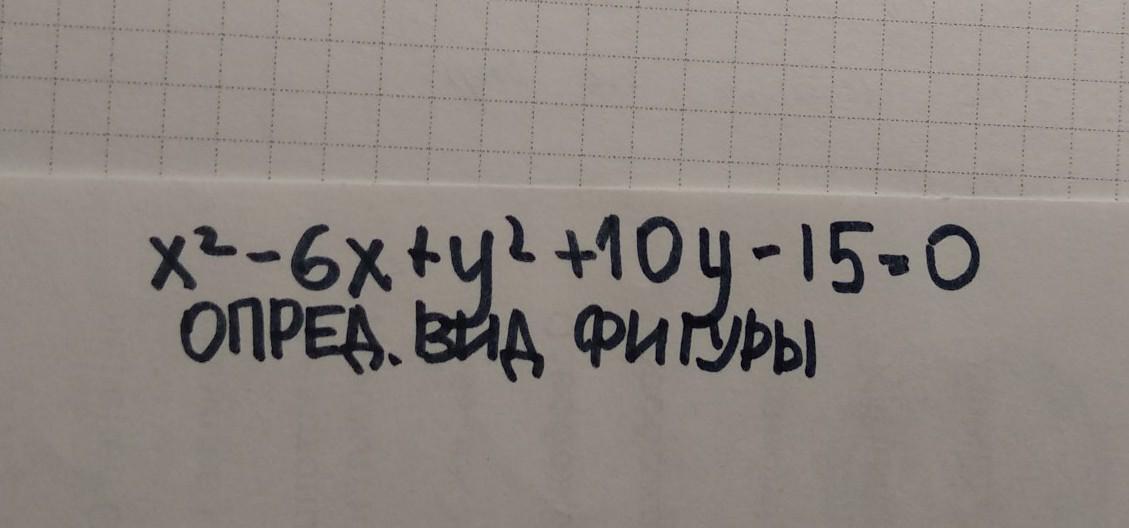 x²-6x+y²+10y-15=0
ОПРЕД. ВИД ФИГУРЫ